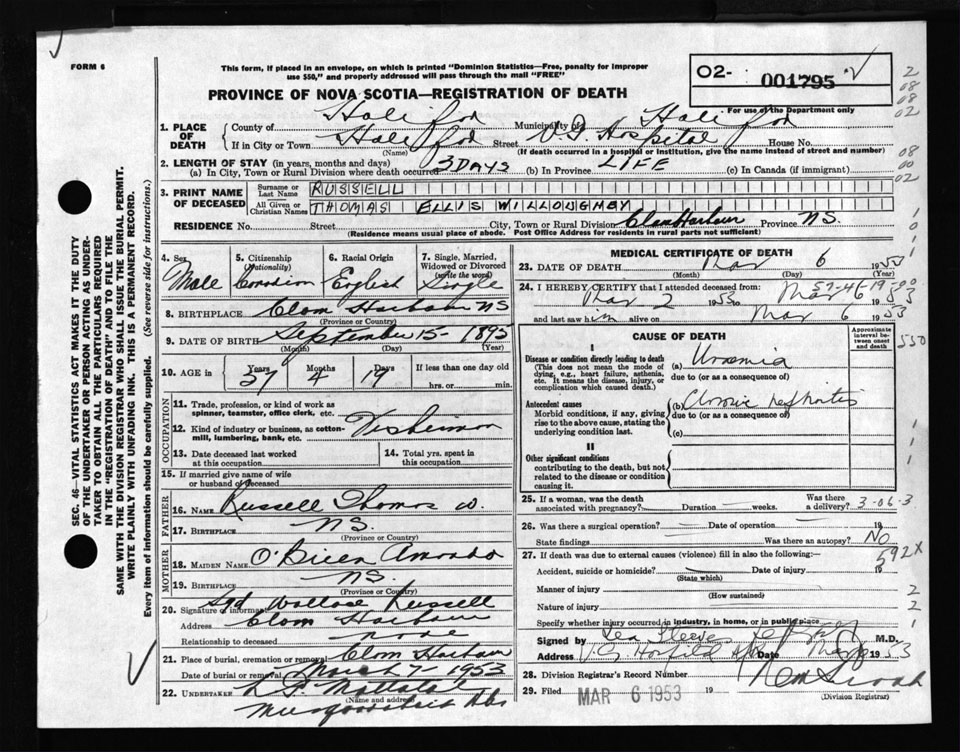 FORM 6
This form, if placed in an envelope, on which is printed "Dominion Statistics—Free, penalty for improper
use $50," and properly addressed will pass through the mail "FREE"
PROVINCE OF NOVA SCOTIA—REGISTRATION OF DEATH
O2- 001795
For use of the Department only
2
08
08
02
08
00
02
1. PLACE OF DEATH
County of Halifax Municipality of Halifax
If in City or Town Halifax Street V.G. Hospital House No.
(Name) (If death occurred in a hospital or institution, give the name instead of street and number)
2. LENGTH OF STAY (in years, months and days)
(a) In City, Town or Rural Division where death occurred 3 DAYS (b) In Province LIFE (c) In Canada (if immigrant)
3. PRINT NAME OF DECEASED
Surname or Last Name RUSSELL
All Given or Christian Names THOMAS ELLIS WILLOUGHBY
RESIDENCE No. Street City, Town or Rural Division Clam Harbour Province N.S.
(Residence means usual place of abode. Post Office Address for residents in rural parts not sufficient)
SEC. 46—VITAL STATISTICS ACT MAKES IT THE DUTY
OF THE UNDERTAKER OR PERSON ACTING AS UNDER-
TAKER TO OBTAIN ALL THE PARTICULARS REQUIRED
IN THE "REGISTRATION OF DEATH" AND TO FILE THE
SAME WITH THE DIVISION REGISTRAR WHO SHALL ISSUE THE BURIAL PERMIT.
WRITE PLAINLY WITH UNFADING INK. THIS IS A PERMANENT RECORD.
Every item of information should be carefully supplied. (See reverse side for instructions.)
4. Sex Male
5. Citizenship (Nationality) Canadian
6. Racial Origin English
7. Single, Married, Widowed or Divorced (write the word) Single
8. BIRTHPLACE Clam Harbour NS
(Province or Country)
9. DATE OF BIRTH September 15 - 1895
(Month) (Day) (Year)
10. AGE in Years 57 Months 4 Days 19 If less than one day old
hrs. or min.
OCCUPATION
11. Trade, profession, or kind of work as
spinner, teamster, office clerk, etc.
12. Kind of industry or business, as cotton-
mill, lumbering, bank, etc. Fisherman
13. Date deceased last worked
at this occupation
14. Total yrs. spent in
this occupation
15. If married give name of wife
or husband of deceased
FATHER
16. Name Russell Thomas W.
17. Birthplace N.S.
(Province or Country)
MOTHER
18. MAIDEN NAME O'Brien Amanda
19. BIRTHPLACE N.S.
(Province or Country)
20. Signature of informant Sgd Wallace Russell
Address Clam Harbour
Relationship to deceased none
21. Place of burial, cremation or removal Clam Harbour
Date of burial or removal March 7 - 1953
22. UNDERTAKER
(Name and address)
Musquodoboit Hbr
MEDICAL CERTIFICATE OF DEATH
23. DATE OF DEATH Mar 6 1953
(Month) (Day) (Year)
57-46-19
24. I HEREBY CERTIFY that I attended deceased from:
Mar 2 1953 to Mar 6 1953
and last saw him alive on Mar 6 1953
CAUSE OF DEATH
Approximate interval between onset and death
I
Disease or condition directly leading to death
(This does not mean the mode of
dying, e.g., heart failure, asthenia,
etc. It means the disease, injury, or
complication which caused death.)
(a) Uraemia
due to (or as a consequence of)
Antecedent causes
Morbid conditions, if any, giving
rise to the above cause, stating the
underlying condition last.
(b) Chronic nephritis
due to (or as a consequence of)
(c)
II
Other significant conditions
contributing to the death, but not
related to the disease or condition
causing it.
25. If a woman, was the death
associated with pregnancy? Duration weeks. Was there
a delivery? 3-06-3
26. Was there a surgical operation? Date of operation 19
State findings Was there an autopsy? No
592X
27. If death was due to external causes (violence) fill in also the following:—
Accident, suicide or homicide? Date of injury 19
(State which)
Manner of injury
(How sustained)
Nature of injury
Specify whether injury occurred in industry, in home, or in public place
Signed by M.D.
Address V.G. Hospital Hfx Date Mar 6 1953
28. Division Registrar's Record Number
29. Filed MAR 6 1953 19
(Division Registrar)